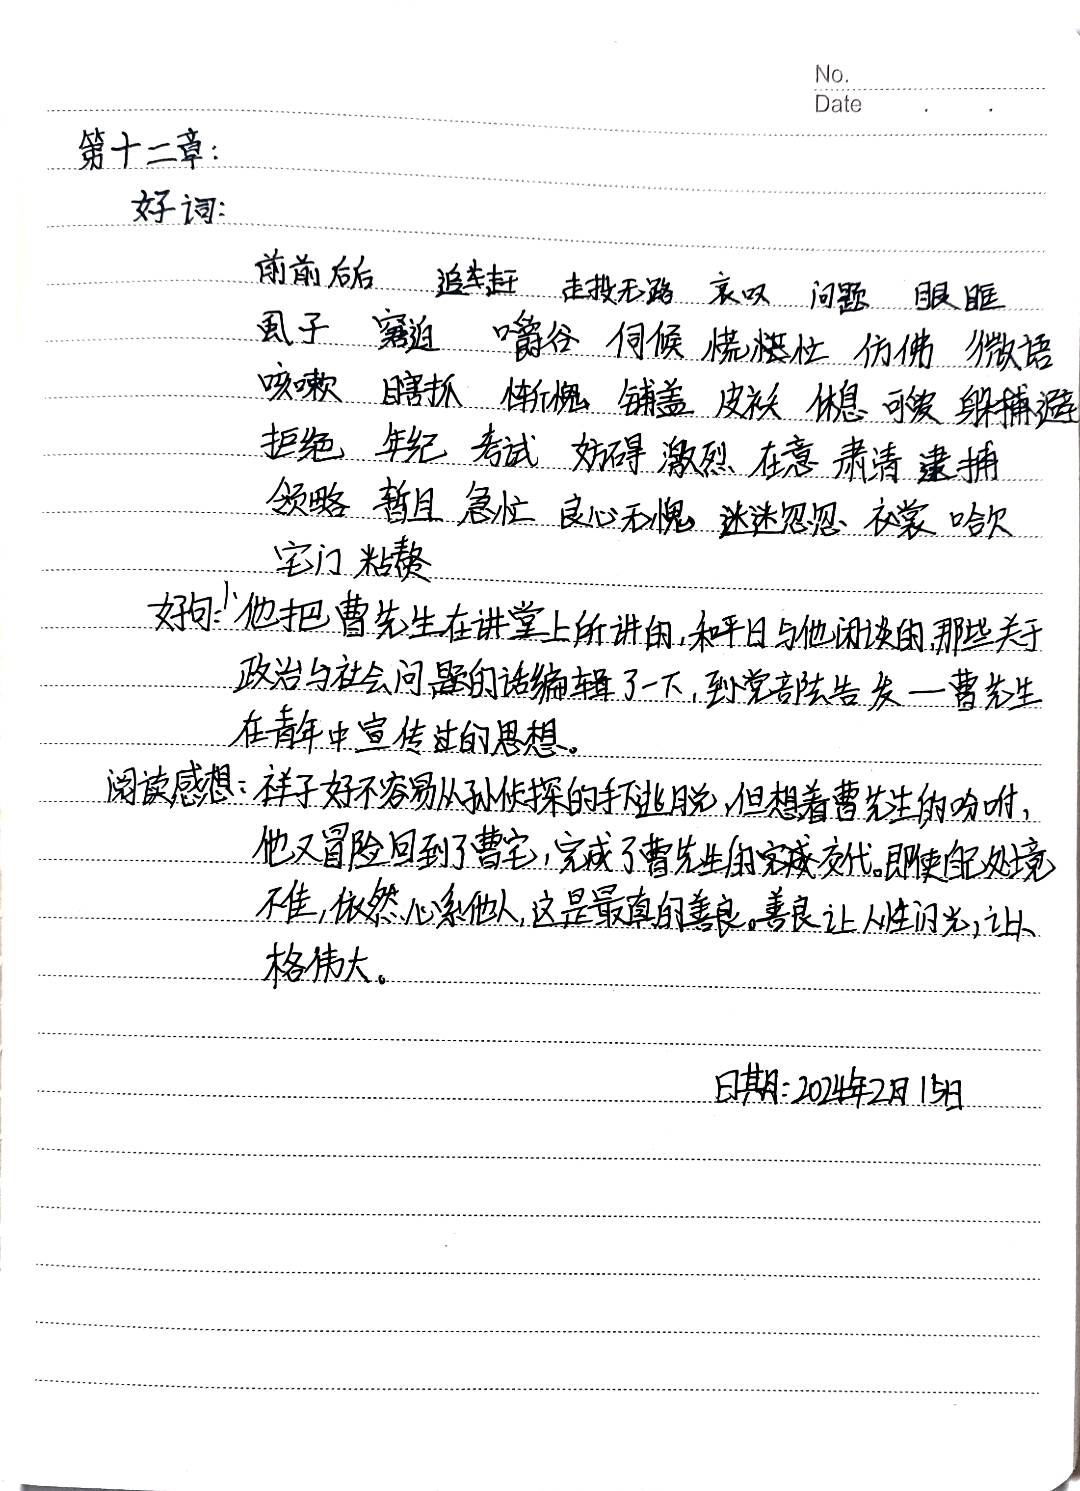 No.
Date . .
第十二章：
好词：
前前后后 追赶 走投无路 哀叹 问题 眼眶
虱子 窘迫 嚼谷 伺候 慌忙 仿佛 微语
咳嗽 瞎抓 惭愧 铺盖 皮袄 休息 可疑 躲避
拒绝 年纪 考试 妨碍 激烈 在意 肃清 逮捕
领略 暂且 急忙 良心无愧 迷迷忽忽 衣裳 哈欠
宅门 粘赘
好句：1、他把曹先生在讲堂上所讲的，和平日与他闲谈的，那些关于
政治与社会问题的话编辑了一下，到党部去告发—曹先生
在青年中宣传过的思想。
阅读感想：祥子好不容易从孙侦探的手下逃脱，但想着曹先生的吩咐，
他又冒险回到了曹宅，完成了曹先生的完成交代。即使自己处境
不佳，依然心系他人，这是最真的善良。善良让人性闪光，让人
格伟大。
日期：2024年2月15日